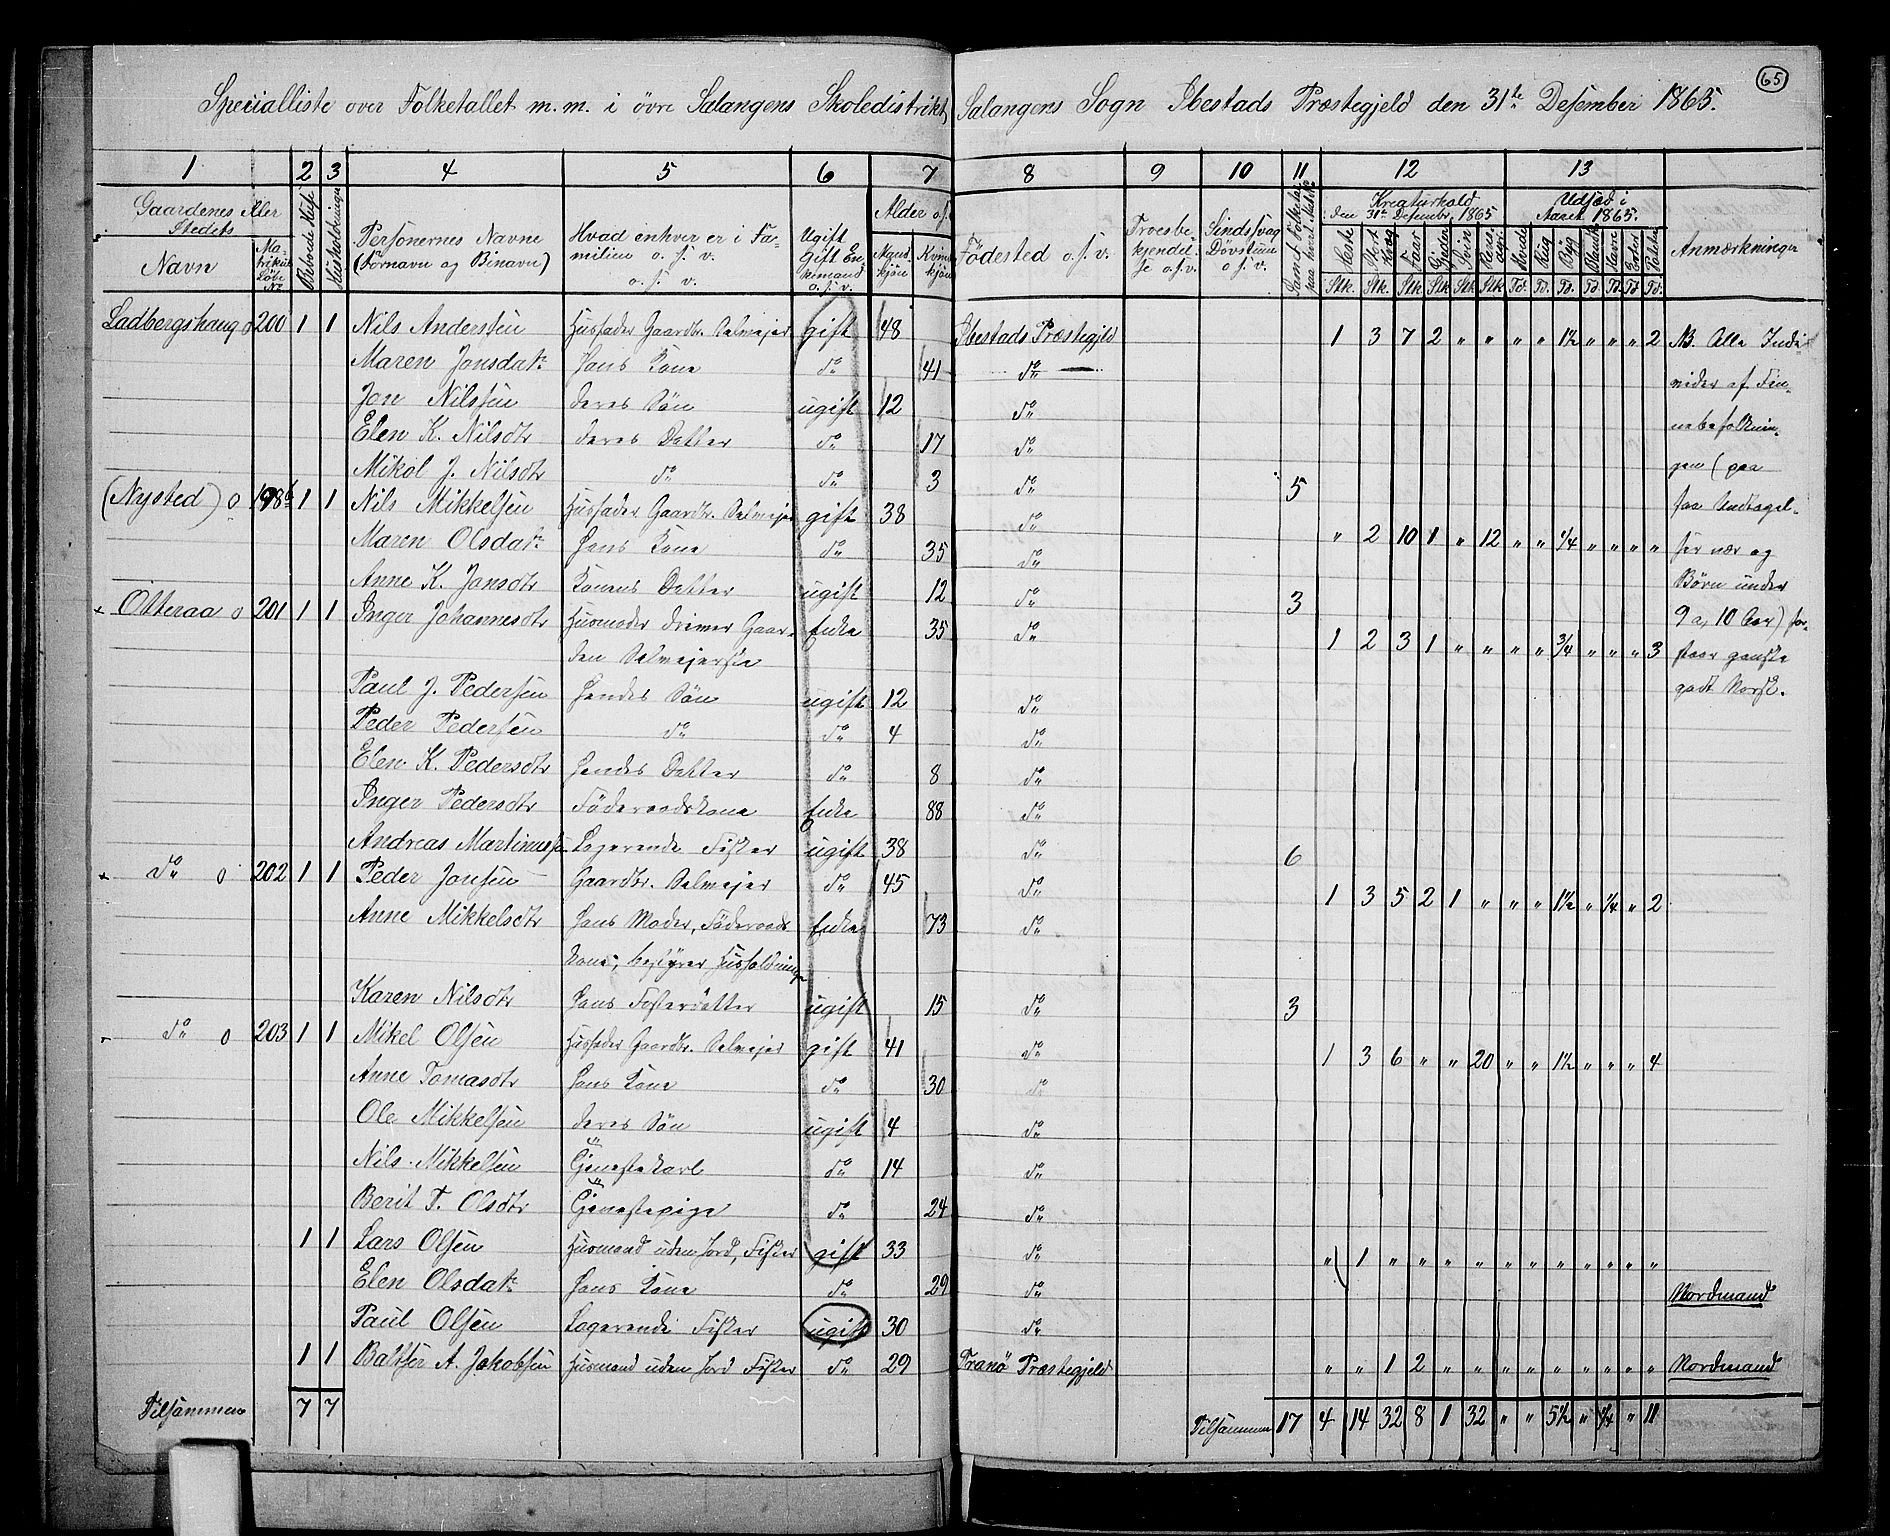 65
Specialliste over Folketallet m. m. i övre Salangens Skoledistrikt, Salangens Sogn Ibestads Præstegjeld den 31te Desember 1865.
1 2 3 4 5 6 7 8 9 10 11 12 13
Gaardenes eller Stedets Navn Matrikul Löbe No Beboede Huse Husholdninger Personernes Navne (Fornavn og Binavn) Hvad enhver er i Familien o. s. v. Ugift Gift Enkemand o. s. v. Alder o. s. Mandkjön Kvindkjön Födested o. s. v. Troesbekjendelse o. s. v. Sindssvag Dövstum o. s. v. Kreaturhold den 31te Desembr. 1865 Udsæd i Aaret 1865. Anmærkninger
Heste Stort Kvæg Faar Gjeder Svin Rensdyr Hvede Rug Byg Blandk. Havre Erter Poteter
Stk. Stk. Stk Stk Stk Stk Td. Td. Td. Td. Td. Td. Td.
Ladbergshaug o 200 1 1 Nils Anderssen Husfader Gaardbr. Selvejer gift 48 Ibestads Præstegjld 1 3 7 2 " " " " 1½ " " " 2 NB. Alle Indi-
Maren Jonsdatr Hans Kone do 41 do vider af Fin-
Jon Nilssen deres Sön ugift 12 do
Elen K. Nilsdtr deres Datter do 17 do nebefolknin-
Mikol J. Nilsdtr do do 3 do 5 gen (paa
(Nysted) o 198b 1 1 Nils Mikkelsen Husfader Gaardbr. Selvejer gift 38 do " 2 10 1 " 12 " " ¼ " " " " faa Undtagel-
Maren Olsdatr Hans Kone do 35 do ser nær og
Anne K. Jonsdtr Konens Datter ugift 12 do 3 Börn under
+ Otteraa o 201 1 1 Inger Johannesdtr Husmoder driver Gaar- Enke 35 do 1 2 3 1 " " " " ¾ " " " 3 9 a, 10 Aar) for-
den Selvejerske staar ganske
Paul J. Pedersen Hendes Sön ugift 12 do godt Norsk.
Peder Pedersen do do 4 do
Elen K. Pedersdtr Hendes Datter do 8 do
Inger Pedersdtr Föderaadskone Enke 88 do
Andreas Martinuss. Logerende Fisker ugift 38 do 6
+ do o 202 1 1 Peder Jonsen Gaardbr. Selvejer do 45 do 1 3 5 2 1 " " " 1½ " ¼ " 2
Anne Mikkelsdtr Hans Moder, Föderaads Enke 73 do
kone, bestyrer Husholdningen
Karen Nilsdtr Hans Fosterdatter ugift 15 do 3
- do o 203 1 1 Mikel Olsen Husfader Gaardbr. Selvejer gift 41 do 1 3 6 " " 20 " " 1½ " " " 4
Anne Tomasdtr Hans Kone do 30 do
Ole Mikkelsen deres Sön ugift 4 do
Nils Mikkelsen Tjenestekarl do 14 do
Berit T. Olsdtr Tjenestepige do 24 do
1 1 Lars Olsen Husmand uden Jord, Fisker gift 33 do " 1 " " " " " " " " " " "
Elen Olsdatr Hans Kone do 29 do Nordmand
Paul Olsen Logerende Fisker ugift 30 do
1 1 Baltser A. Jakobsen Husmand uden Jord Fisker do 29 Tranö Præstegjeld " " 1 2 " " " " " " " " " Nordmand
Tilsammen 7 7 Tilsammen 17 4 14 32 8 1 32 " " 5½ " ¼ " 11